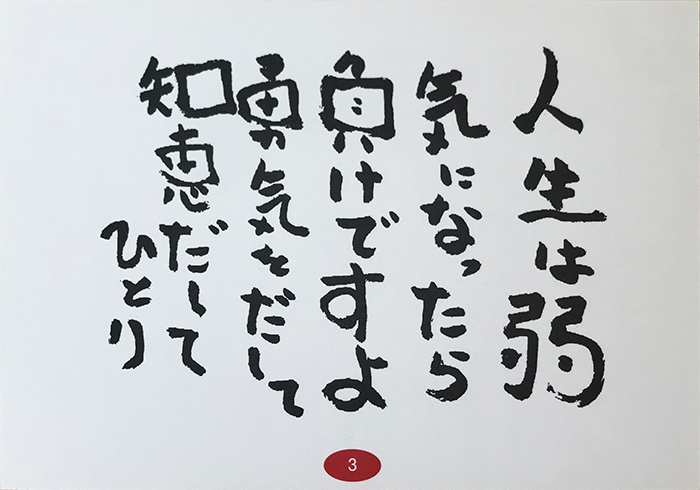 人生は弱
気になったら
負けですよ
勇気をだして
知恵だして
ひとり
3